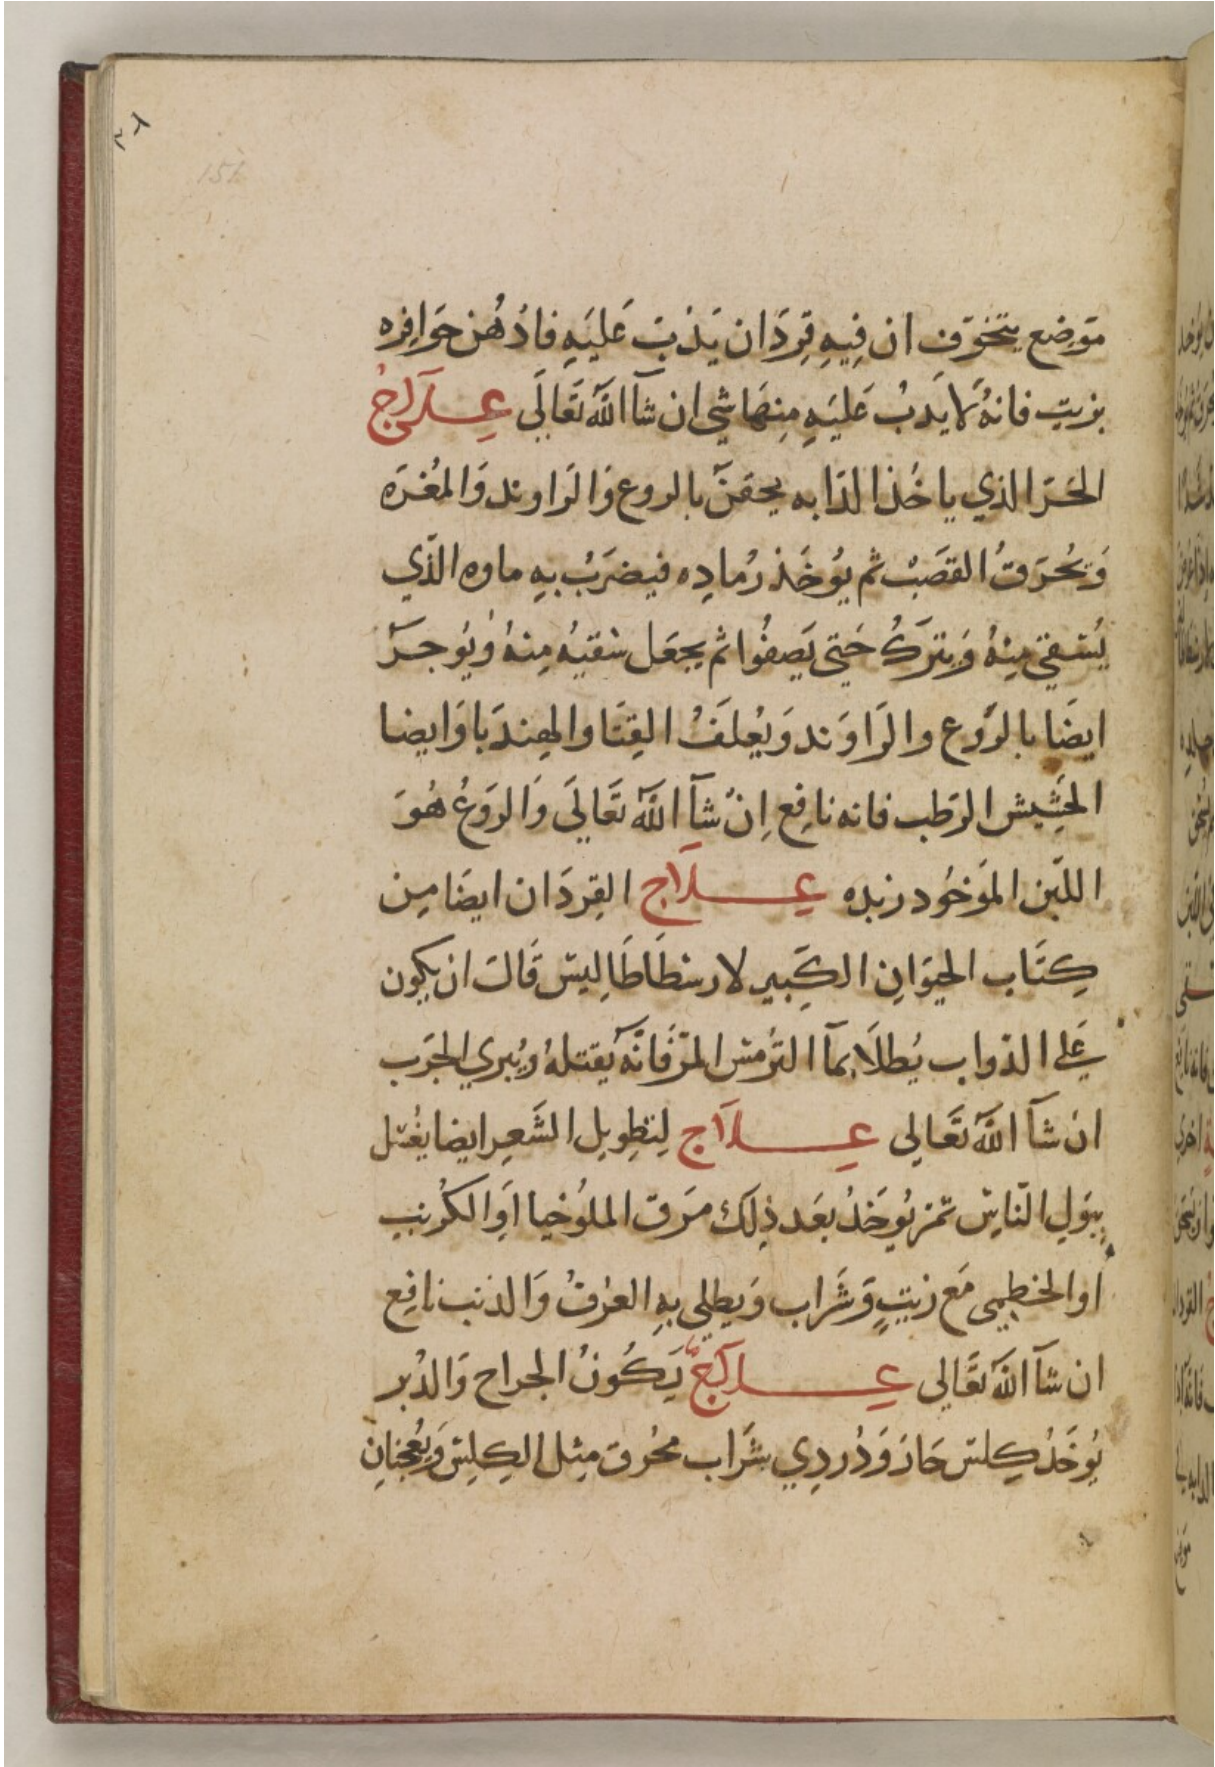 موضع يتخوف ان فيه قردان يدب عليه فادهن حوافره
بزيت فانه لا يدب عليه منها شي ان شآ الله تعالى علاج
الحر الذي ياخذ الدابه يحقن بالروع والراوند والمغره
ويحرق القصب ثم يوخذ رماده فيضرب به ماوه الذي
يستقي منه ويترك حتى يصفوا ثم يجعل سقيه منه ويوجر
ايضا بالروع والراوند ويعلف القتا والهندبا وايضا
الحشيش الرطب فانه نافع ان شآ الله تعالى والروع هو
اللبن الموخود زبده علاج القردان ايضا من
كتاب الحيوان الكبير لارسطاطاليس قال ان يكون
على الدواب يطلا بمآ الترمس المر فانه يقتله ويبري الجرب
ان شآ الله تعالى علاج لتطويل الشعر ايضا يغسل
ببول الناس ثم يوخذ بعد ذلك مرق الملوخيا او الكرنب
او الخطمي مع زيت وشراب ويطلى به العرف والذنب نافع
ان شآ الله تعالى علاج يكون الجراح والدبر
يوخذ كلس حار ودردي شراب محرق مثل الكلس ويعجنان
151